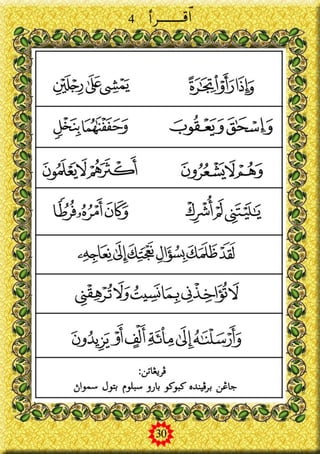 ٱقــرأ 4
وَإِذَا رَأَوْا۟ تِجَـٰرَةً يَمْشِى عَلَىٰ رِجْلَيْنِ
وَإِسْحَـٰقَ وَيَعْقُوبَ وَحَفَفْنَـٰهُمَا بِنَخْلٍ
وَهُمْ لَا يَشْعُرُونَ أَكْثَرُهُمْ لَا يَعْلَمُونَ
يَـٰلَيْتَنِى لَمْ أُشْرِكْ وَكَانَ أَمْرُهُۥ فُرُطًا
لَقَدْ ظَلَمَكَ بِسُؤَالِ نَعْجَتِكَ إِلَىٰ نِعَاجِهِۦ
لَا تُؤَاخِذْنِى بِمَا نَسِيتُ وَلَا تُرْهِقْنِى
وَأَرْسَلْنَـٰهُ إِلَىٰ مِا۟ئَةِ أَلْفٍ أَوْ يَزِيدُونَ
ڤريڠاتن:
جاڠن برڤينده كبوكو بارو سبلوم بتول سموان
30